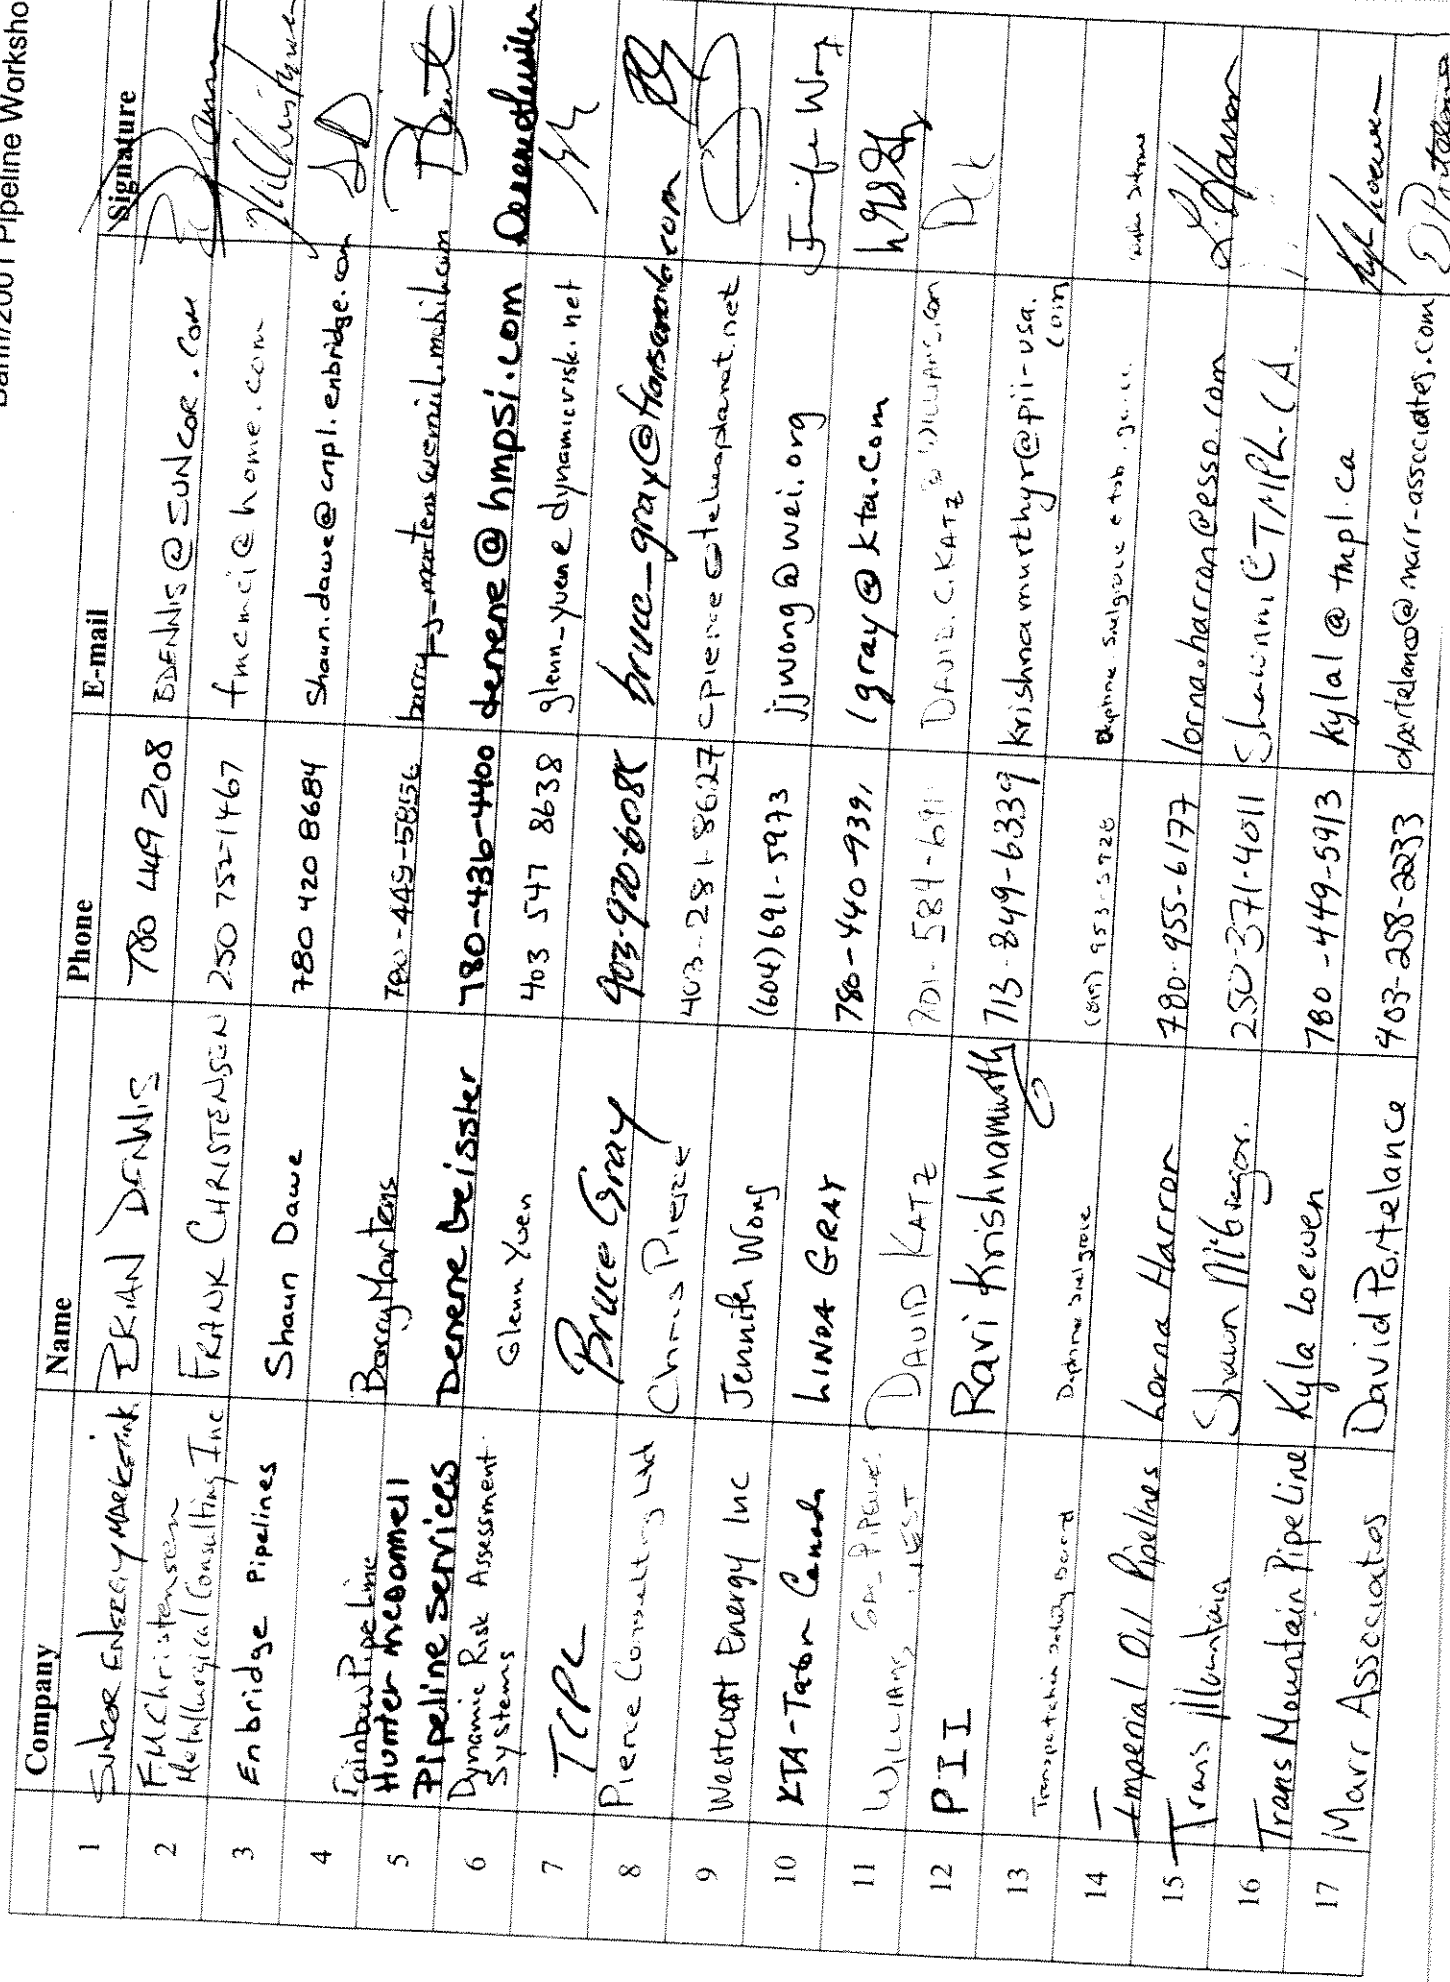 Banff/2001 Pipeline Worksho
Company Name Phone E-mail Signature
1 SUNCOR ENERGY MARKETING BRIAN DENNIS 780 449 2108 BDENNIS@SUNCOR.COM
2 F.M. Christensen FRANK CHRISTENSEN 250 752-1467 fmcmci@home.com
Metallurgical Consulting Inc
3 Enbridge Pipelines Shaun Dawe 780 420 8684 Shaun.dawe@cnpl.enbridge.com
4 Rainbow Pipe Line Barry Martens 780-449-5856
5 Hunter McDonnell Denene Geissler 780-436-4400 denene@hmpsi.com
Pipeline Services
6 Dynamic Risk Assessment Glenn Yuen 403 547 8638 glenn-yuen@dynamicrisk.net
Systems
7 TCPL Bruce Gray bruce_gray@
8 Pierce Consulting Ltd Chris Pierce 403-281-8627 cpierce@telusplanet.net
9 Westcoast Energy Inc Jennifer Wong (604) 691-5973 jjwong@wei.org Jennifer Wong
10 KTA-Tator Canada LINDA GRAY 780-440-9391 lgray@kta.com
11 WILLIAMS GAS PIPELINE DAVID KATZ 801-584-691 DAVID.C.KATZ@WILLIAMS.COM DCK
WEST
12 PII Ravi Krishnamurthy 713-849-6339 krishnamurthyr@pii-usa.
com
13 Transportation Safety Board Daphne Snelgrove (819) 953-5728
14 Imperial Oil Pipelines Lorna Harron 780-955-6177 lorna.harron@esso.com L. Harron
15 Trans Mountain Shawn McGregor. 250-371-4011 Shawnm@TMPL.CA.
16 Trans Mountain Pipe Line Kyla Loewen 780-449-5913 kylal@tmpl.ca Kyla Loewen
17 Marr Associates David Portelance 403-258-2233 dportelance@marr-associates.com